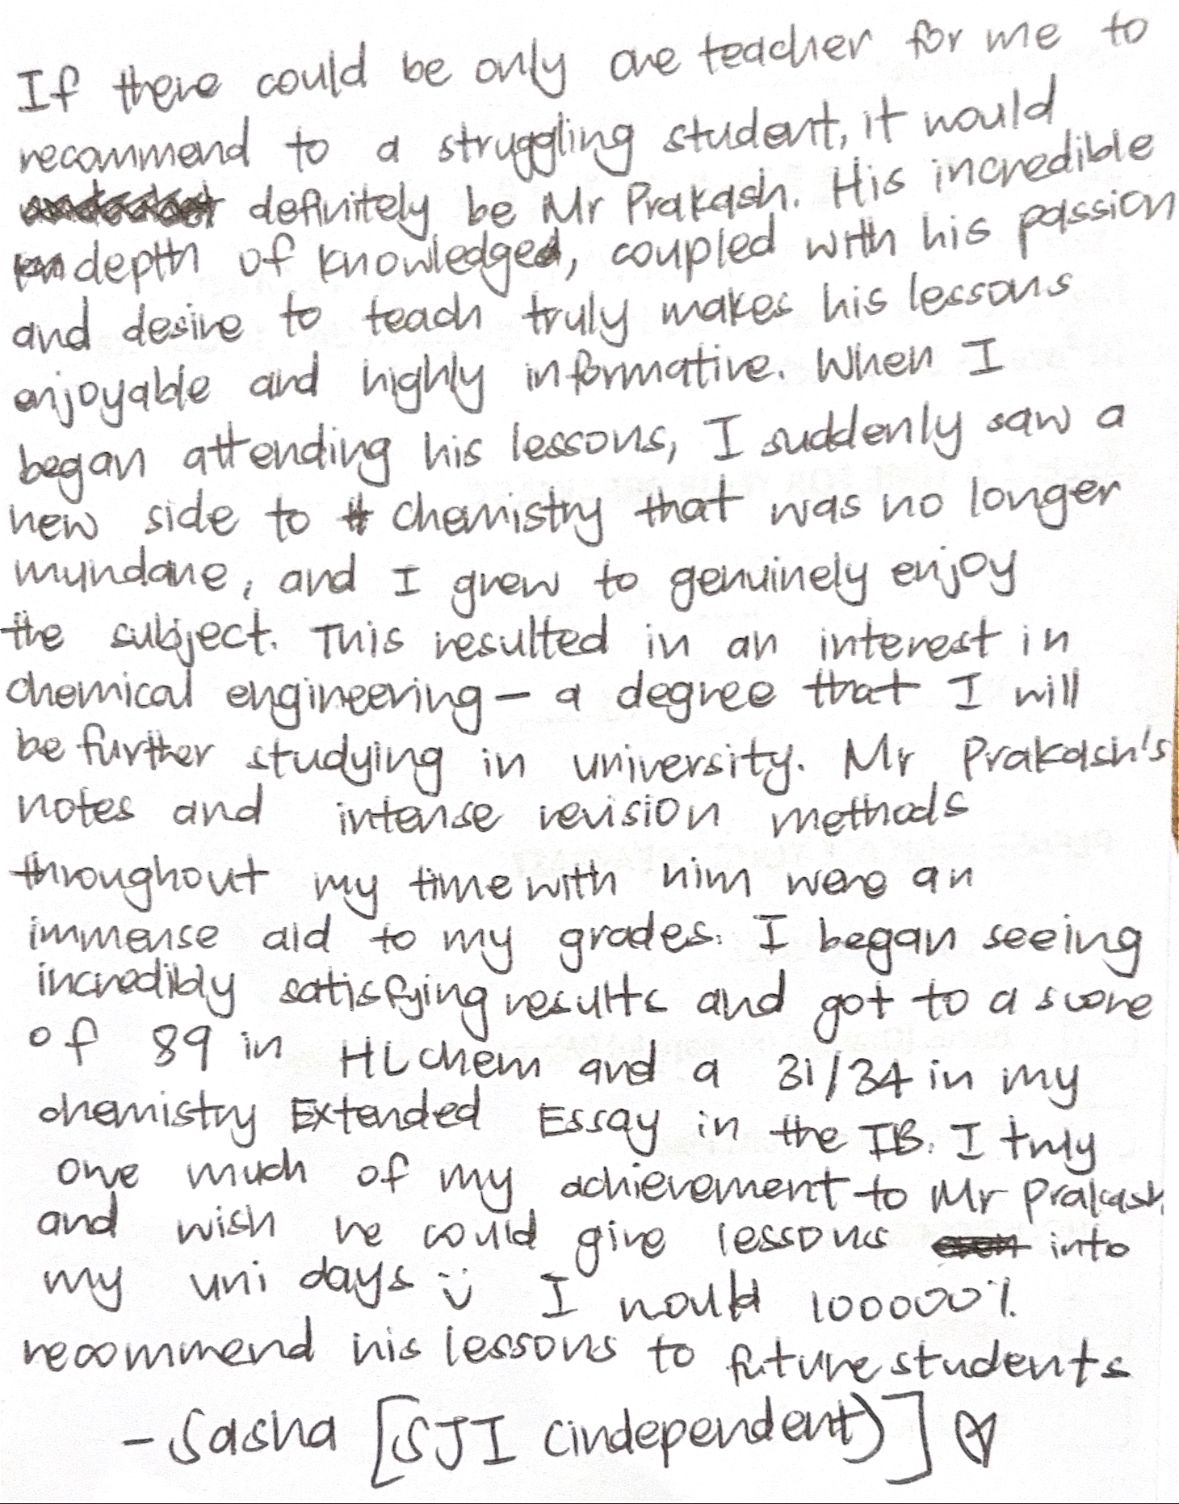 If there could be only one teacher for me to
recommend to a struggling student, it would
definitely be Mr Prakash. His incredible
depth of knowledged, coupled with his passion
and desire to teach truly makes his lessons
enjoyable and highly informative. When I
began attending his lessons, I suddenly saw a
new side to chemistry that was no longer
mundane, and I grew to genuinely enjoy
the subject. This resulted in an interest in
chemical engineering – a degree that I will
be further studying in university. Mr Prakash's
notes and intense revision methods
throughout my time with him were an
immense aid to my grades. I began seeing
incredibly satisfying results and got to a score
of 89 in HL chem and a 31/34 in my
chemistry Extended Essay in the IB. I truly
owe much of my achievement to Mr Prakash
and wish he could give lessons into
my uni days :) I would 100000%
recommend his lessons to future students
- Sasha [SJI (independent)] ♡